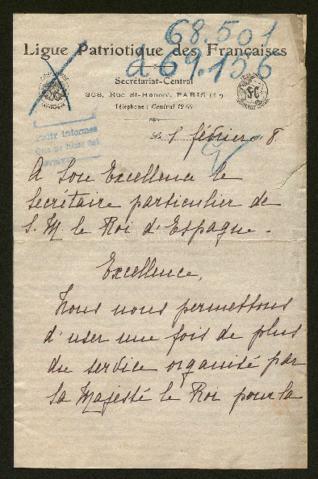 68.501
Ligue Patriotique des Françaises
a 69.156
Secrétariat-Central
368, Rue St-Honoré, PARIS (1er)
Téléphone : Central
1 février 8
A Son Excellence le
Secrétaire particulier de
S. M. le Roi d'Espagne.
Excellence,
Nous nous permettons
d'user une fois de plus
du service organisé par
Sa Majesté le Roi pour la